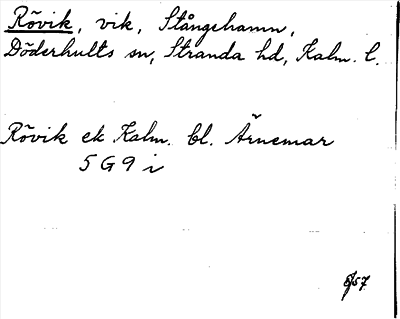 Rövik, vik, Stångehamn,
Döderhults sn, Stranda hd, Kalm. l.
Rövik ek Kalm. bl. Ärnemar
5 G 9 i